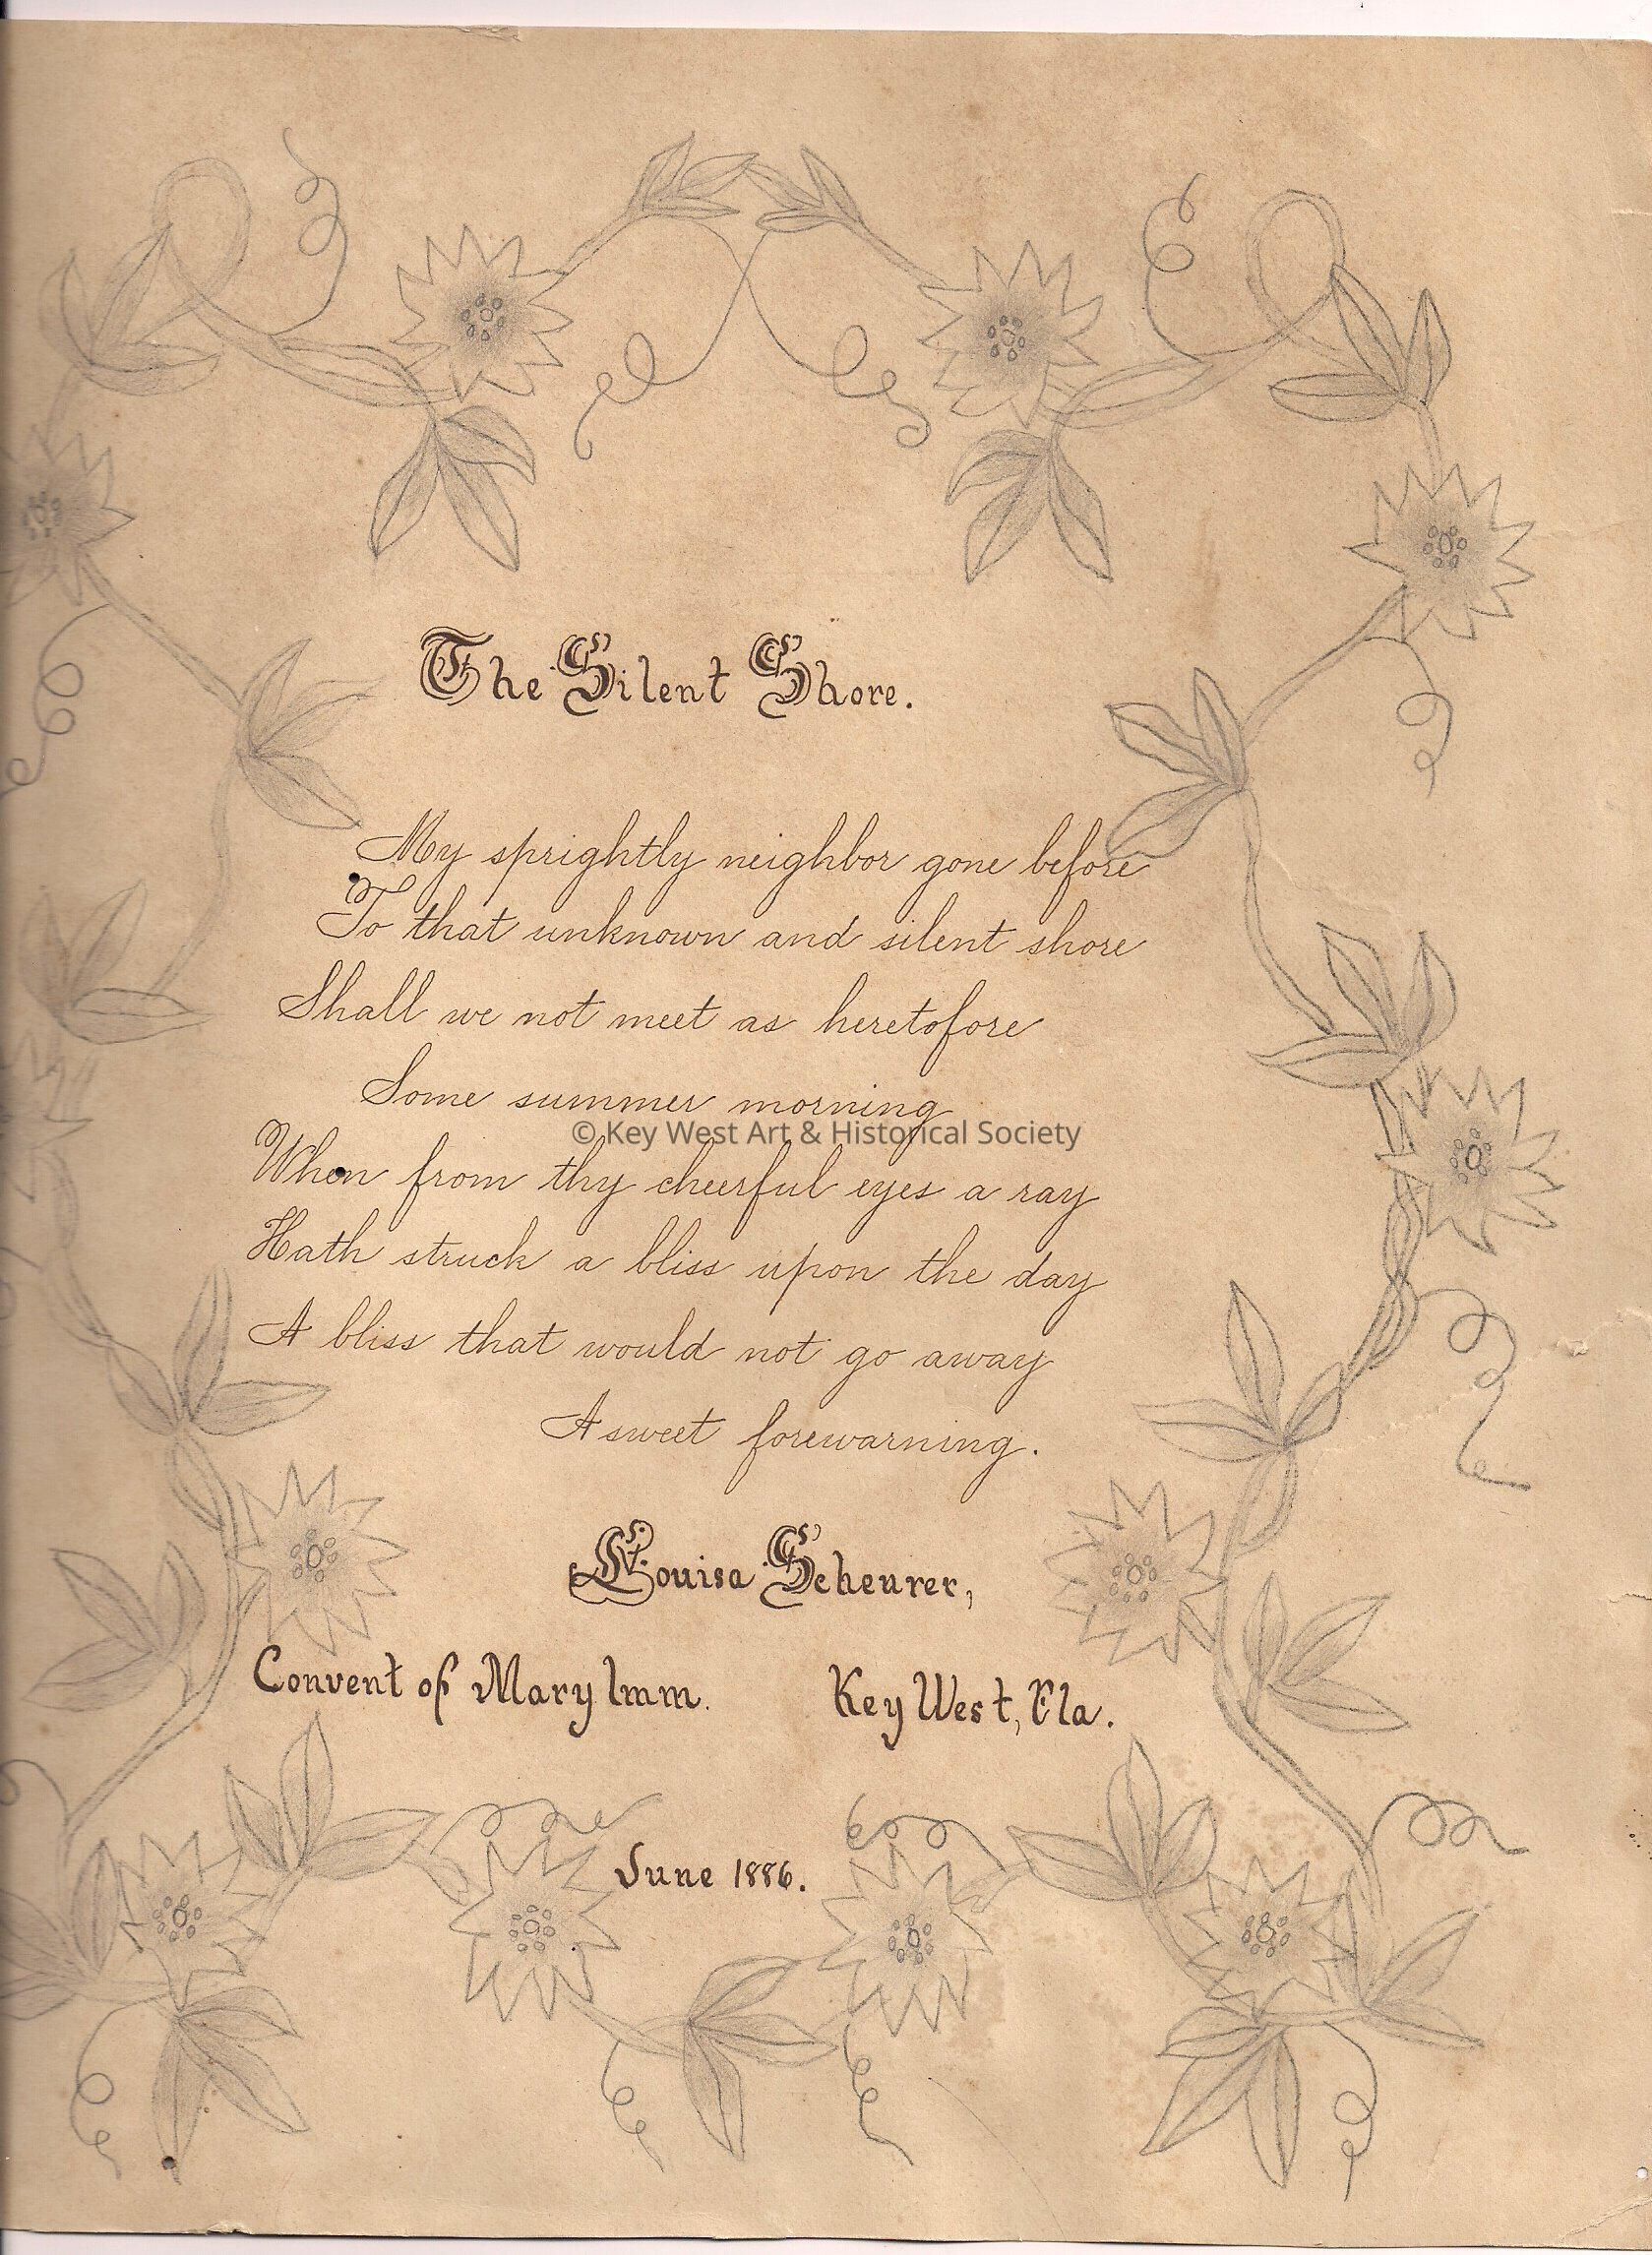 The Silent Shore.
My sprightly neighbor gone before
To that unknown and silent shore
Shall we not meet as heretofore
Some summer morning
© Key West Art & Historical Society
When from thy cheerful eyes a ray
Hath struck a bliss upon the day
A bliss that would not go away
A sweet forewarning.
Louisa Scheurer,
Convent of Mary Imm. Key West, Fla.
June 1886.